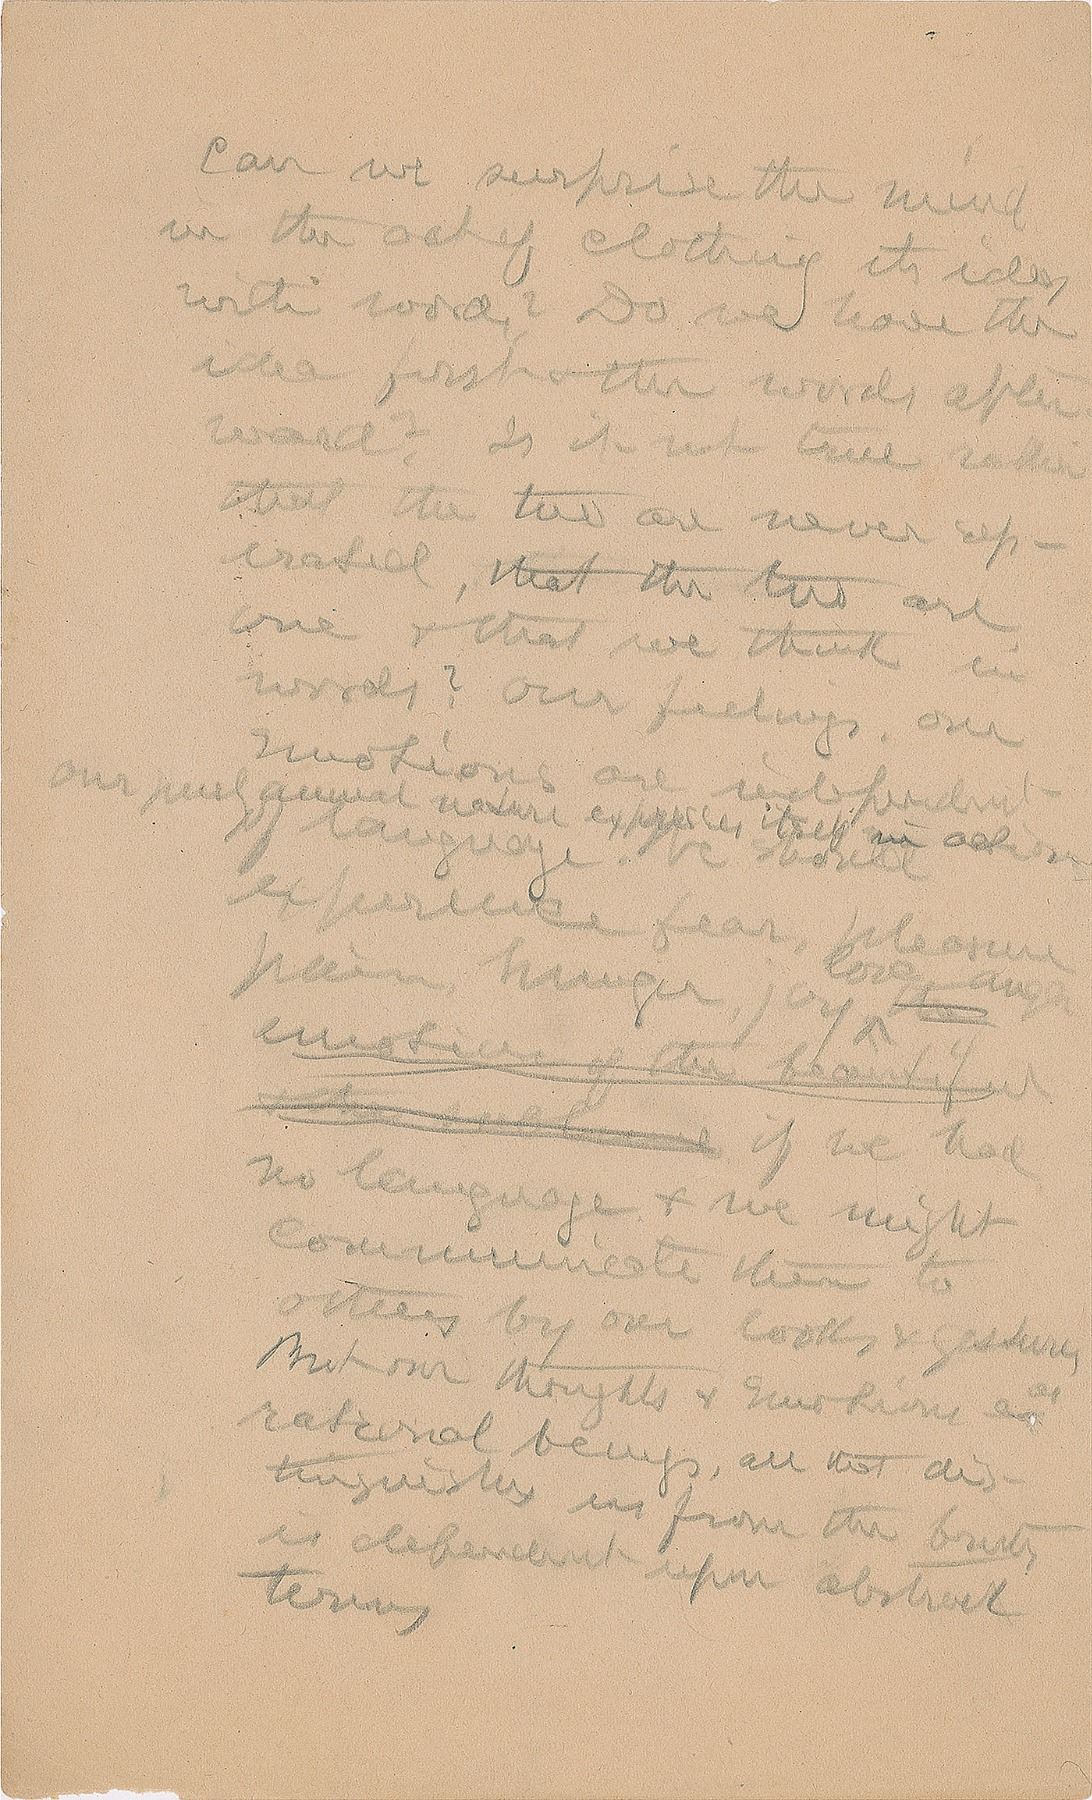 Can we surprise the mind
in the act of clothing its ideas
with words? Do we have the
idea first & the words after
ward? Is it not true rather
that the two are never sep-
erated, that the two are
one & that we think in
words? Our feelings, our
emotions are independent
our animal nature expresses itself in action
of language. We should
experience fear, pleasure
love, anger
pain, hunger, joy, the
emotion of the beautiful
if we had
no language, & we might
communicate them to
others by our looks & gestures,
But our thoughts & emotions as
rational beings, all that dis-
tinguishes us from the brutes,
is dependent upon abstract
terms